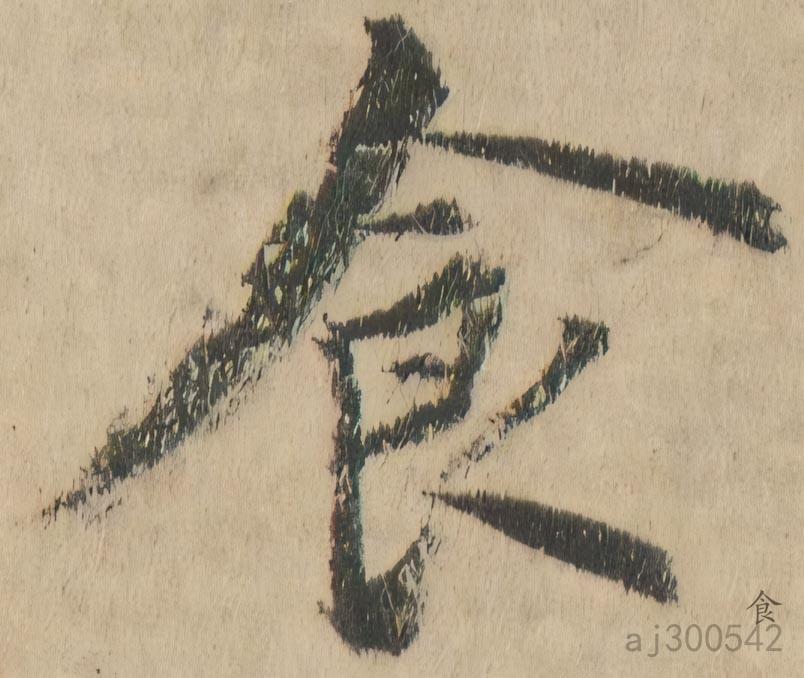 食
食
aj300542